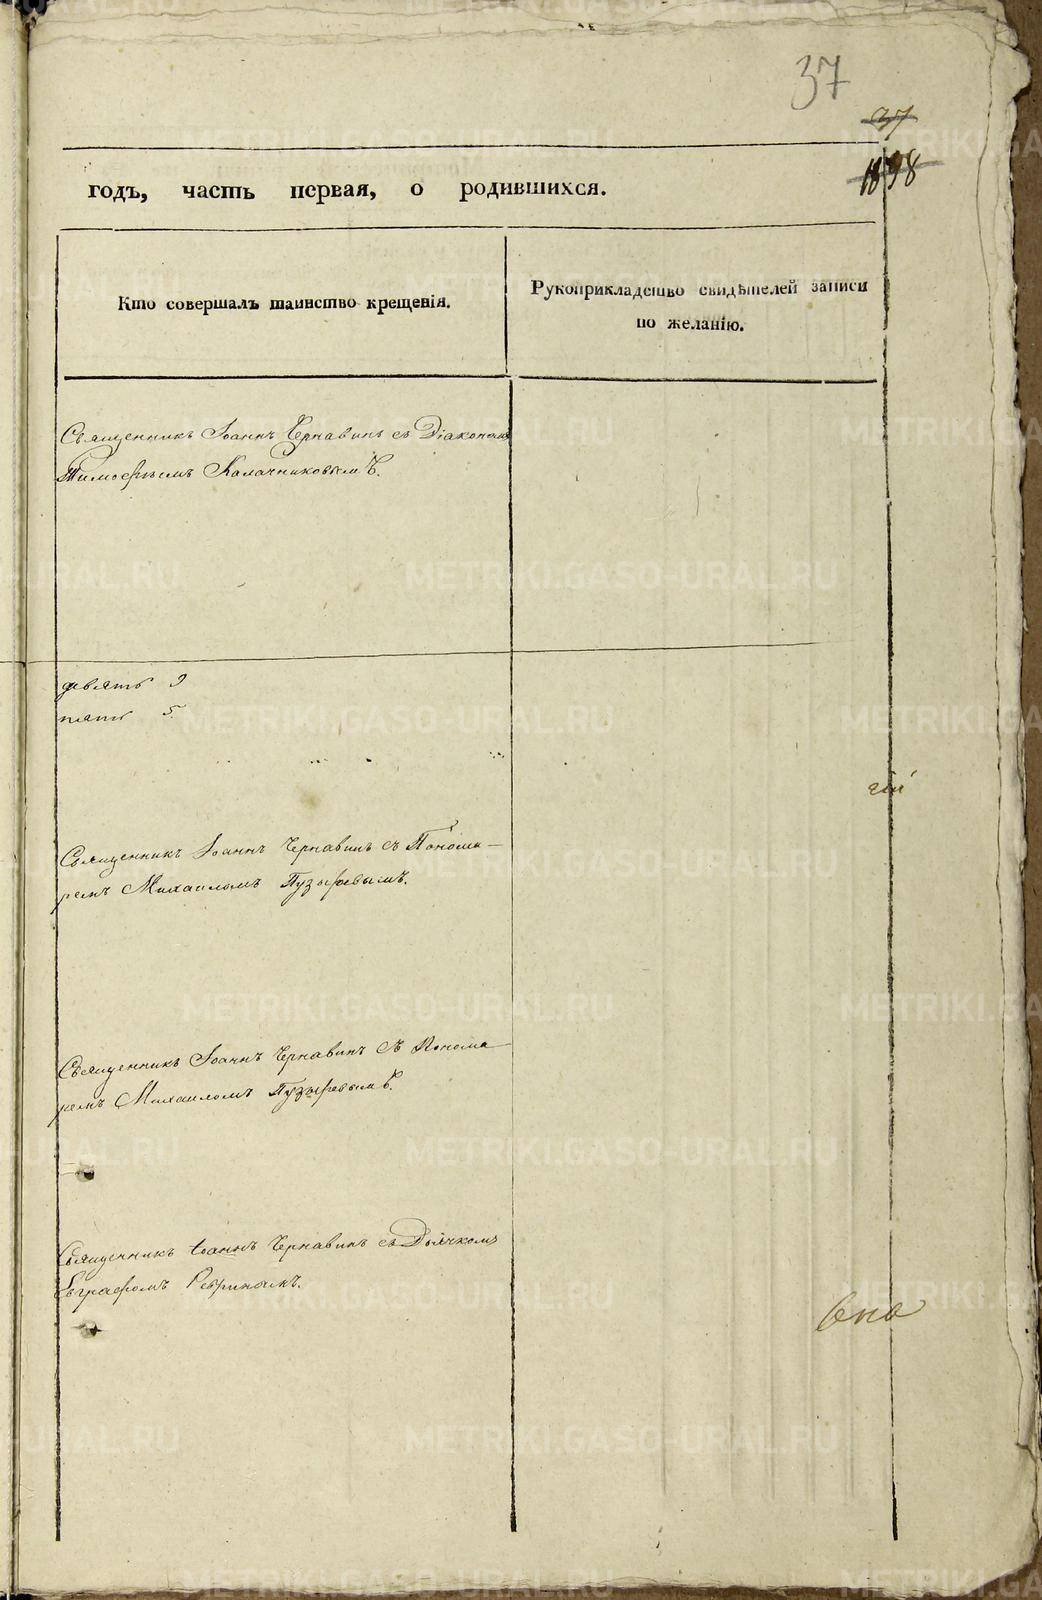 37
37
1898
годъ, часть первая, о родившихся.
Кто совершалъ таинство крещенія.
Рукоприкладство свидѣтелей записи
по желанію.
Священникъ Іоаннъ Чернавинъ съ Діакономъ
Тимофеемъ Калачниковымъ.
девять 9
пять 5.
Священникъ Іоаннъ Чернавинъ съ Понома-
ремъ Михаиломъ Пузыревымъ.
Священникъ Іоаннъ Чернавинъ съ Понома-
ремъ Михаиломъ Пузыревымъ.
Священникъ Іоаннъ Чернавинъ съ Дьячкомъ
Евграфомъ
METRIKI.GASO-URAL.RU